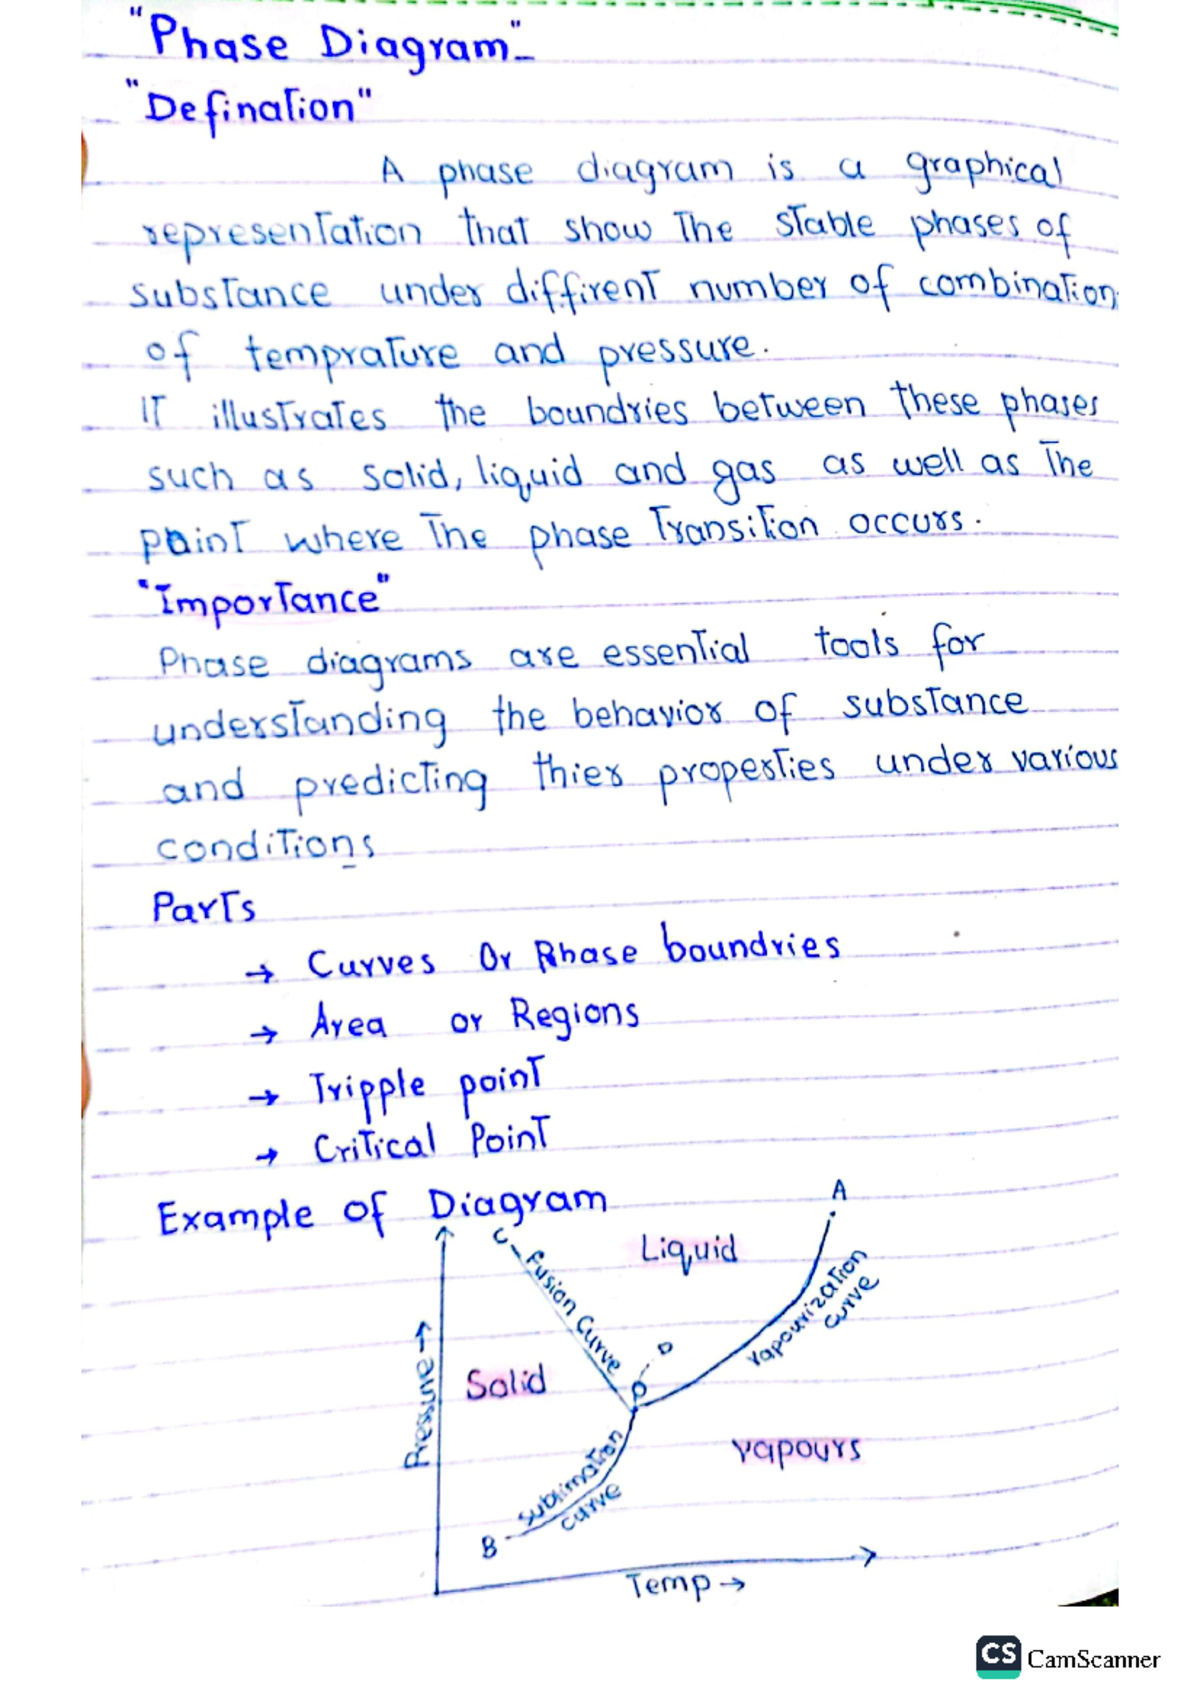 "Phase Diagram"
"Defination"
A phase diagram is a graphical
representation that show The stable phases of
substance under diffirent number of combination
of temprature and pressure.
IT illustrates the boundries between these phases
such as solid, liquid and gas as well as The
point where The phase Transition occurs.
"Importance"
Phase diagrams are essential tools for
understanding the behavior of substance
and predicting thier properties under various
conditions
Parts
→ Curves Or Phase boundries
→ Area or Regions
→ Tripple point
→ Critical Point
Example of Diagram
A
C
Liquid
Fusion Curve
Vapourization
curve
D
O
Solid
Pressure →
Vapours
Sublimation
curve
B
Temp →
CS CamScanner